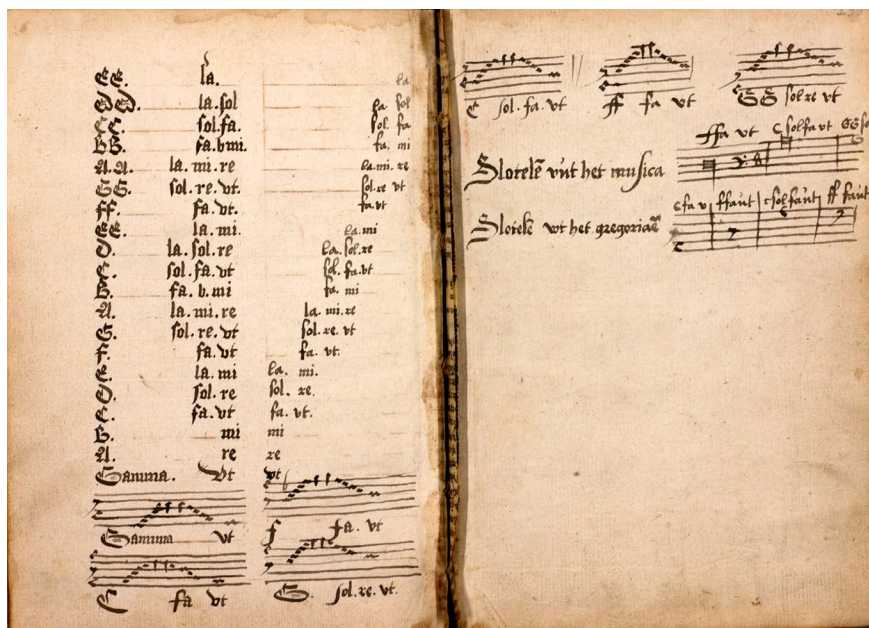 EE. la. la
DD. la.sol la sol
CC. sol.fa. sol. fa
BB. fa.bmi. fa. mi
A.A. la.mi.re la.mi.re
GG. sol.re.vt. sol.re vt
ff. fa.vt. fa.vt
EE. la.mi. la.mi
D. la.sol.re la.sol.re
C. sol.fa.vt sol.fa.vt
B. fa.b.mi fa. mi
A. la.mi.re la.mi.re
G. sol.re.vt sol.re vt
F. fa.vt fa. vt.
E. la.mi la. mi.
D. sol.re sol. re
C. fa.vt fa. vt.
B. mi mi
A. re re
Gamma. Vt vt
Gamma vt f fa. vt
C fa vt G. sol.re.vt.
C sol.fa.vt ff fa vt GG sol re vt
ffa vt C solfa vt GG so
Slotelē vūt het musica
Cfa v ffaut csolfaut ff faut
wt het gregoriaē